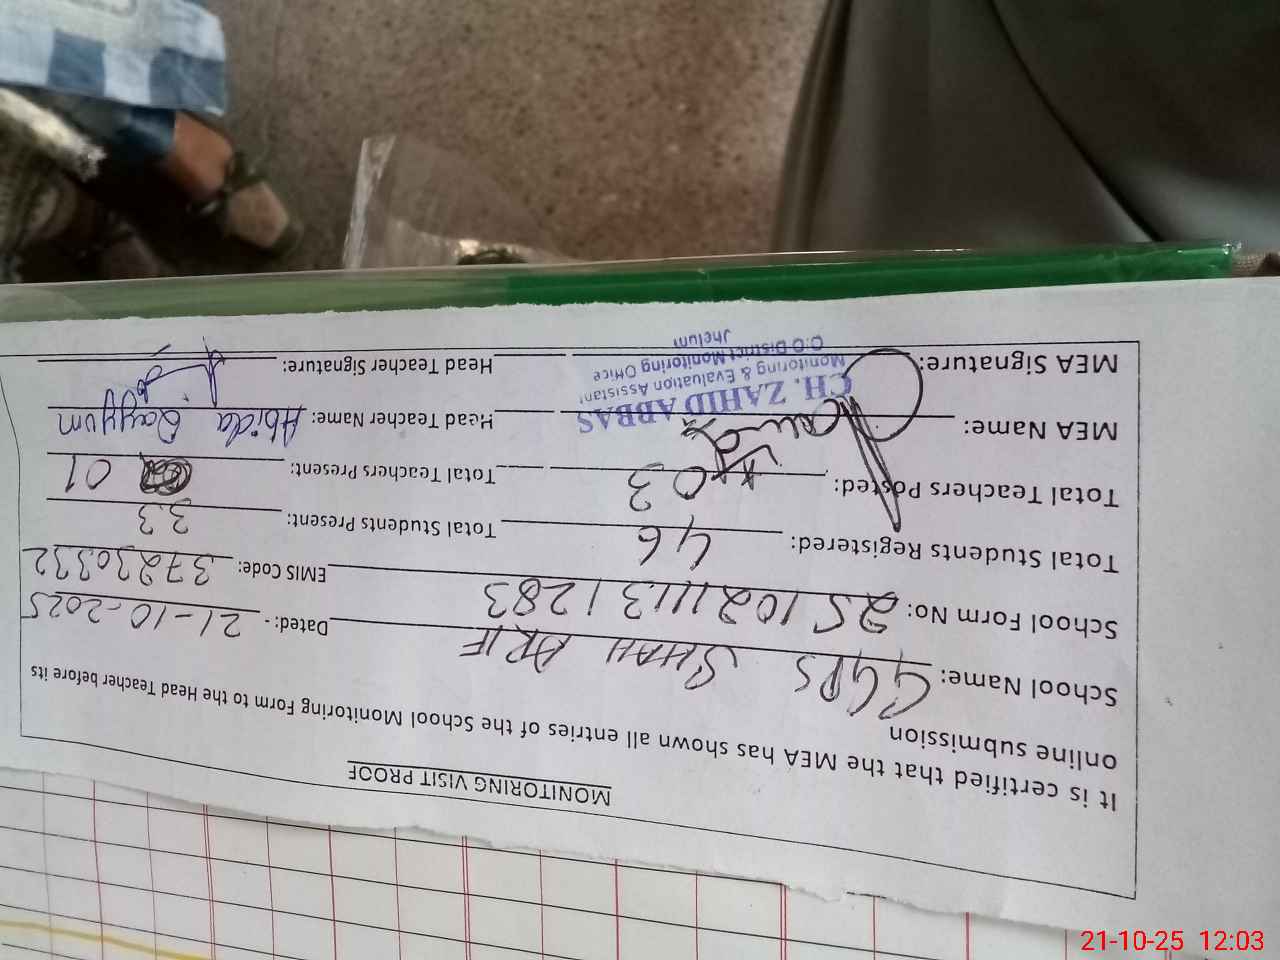 MONITORING VISIT PROOF
It is certified that the MEA has shown all entries of the School Monitoring Form to the Head Teacher before its
online submission
School Name: GGPS SHAH ARIF Dated: - 21-10-2025
School Form No: 2510211131283 EMIS Code: 37230332
Total Students Registered: 46 Total Students Present: 33
Total Teachers Posted: 03 Total Teachers Present: 01
MEA Name: Head Teacher Name: Abida Qayyum
CH. ZAHID ABBAS
Monitoring & Evaluation Assistant
O/O District Monitoring Office
Jhelum
MEA Signature: Head Teacher Signature:
21-10-25 12:03